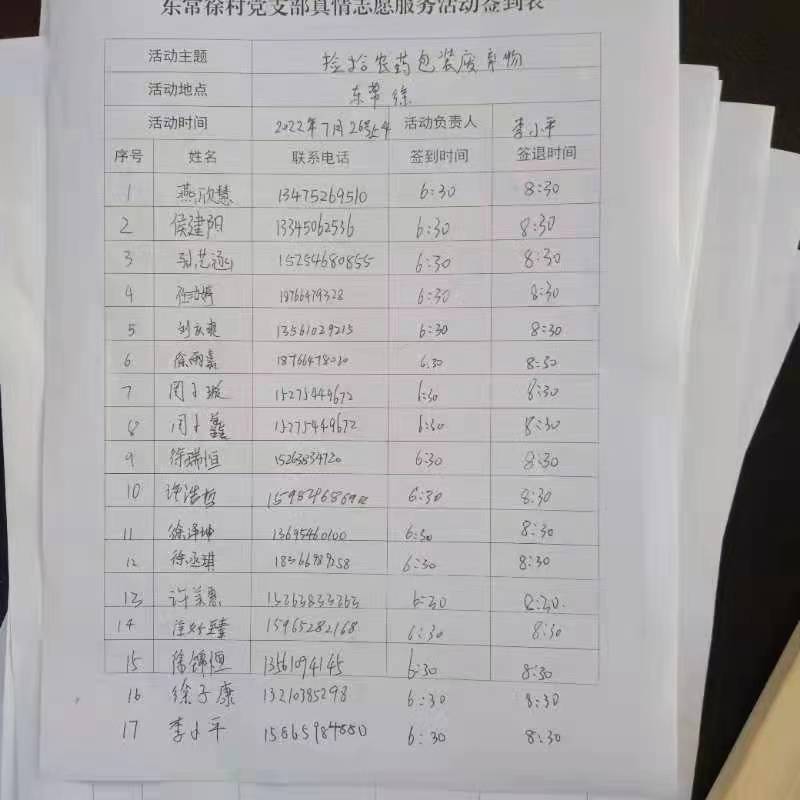 东常徐村党支部真情志愿服务活动签到表
活动主题 捡拾农药包装废弃物
活动地点 东常徐
活动时间 2022年7月26号上午 活动负责人 李小平
序号 姓名 联系电话 签到时间 签退时间
1 燕欣慧 13475269510 6:30 8:30
2 侯建阳 13345062536 6:30 8:30
3 孙艺涵 15254680855 6:30 8:30
4 18766479328 6:30 8:30
5 13561029215 6:30 8:30
6 徐雨嘉 18766478020 6:30 8:30
7 周子璇 15275449672 6:30 8:30
8 周子鑫 15275449672 6:30 8:30
9 徐瑞恒 15263834720 6:30 8:30
10 许浩哲 6:30 8:30
11 徐泽坤 13695460100 6:30 8:30
12 徐丞琪 6:30 8:30
13 6:30 8:30
14 15965282168 6:30 8:30
15 徐锦恒 13561094145 6:30 8:30
16 徐子康 13210385298 6:30 8:30
17 李小平 15865984880 6:30 8:30